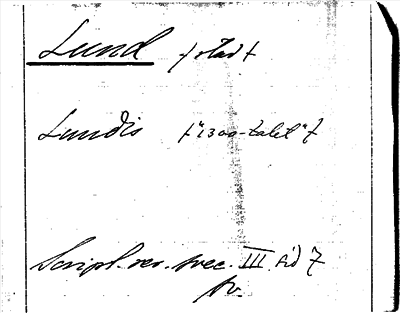 Lund /stad/
Lundis /"1300-talet"/
Script. rer. svec. III sid 7